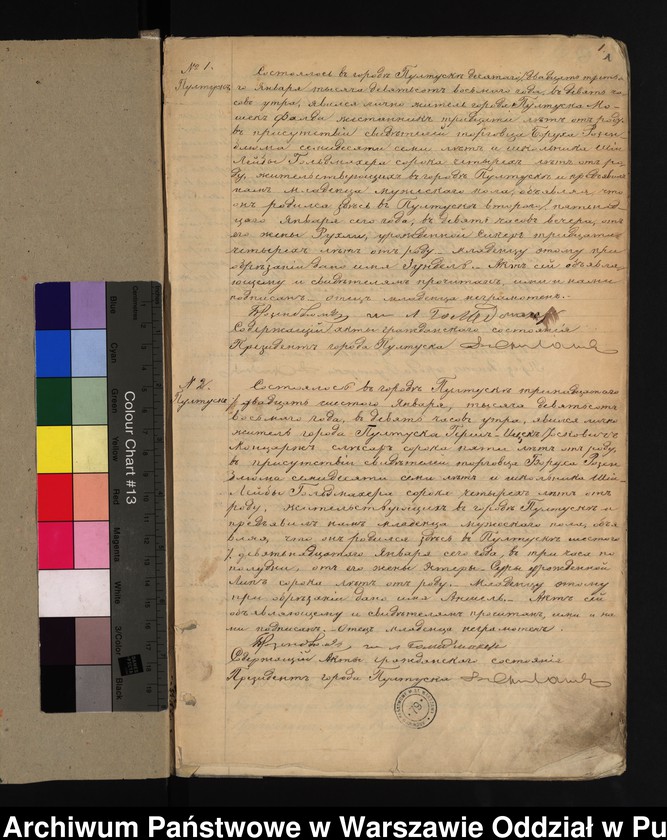 1
№ 1.
Пултускъ
Состоялось въ городѣ Пултускѣ десятаго/двадцать третья-
го Января тысяча девятьсотъ восьмого года, въ девять ча-
совъ утра, явился лично житель города Пултуска Мо-
шекъ тридцати лѣтъ отъ роду
въ присутствіи свидѣтелей торговца Боруха Розен
блюма семидесяти семи лѣтъ и школьника Шій-
Лейбы Гольдмахера сорока четырехъ лѣтъ отъ ро-
ду, жительствующихъ въ городѣ Пултускѣ и предъявилъ
намъ младенца мужескаго пола, объявляя, что
онъ родился здѣсь въ Пултускѣ второго/пятнад-
цатаго Января сего года, въ девять часовъ вечера, отъ
его жены Рухли, урожденной тридцати
четырехъ лѣтъ отъ роду. Младенцу этому при
обрѣзаніи дано имя Зундель. Актъ сей объявля-
ющему и свидѣтелямъ прочитанъ, нами
подписанъ отецъ младенца неграмотенъ.
Содержащій акты гражданскаго состоянія
Президентъ города Пултуска
№ 2.
Пултускъ
Состоялось въ городѣ Пултускѣ тринадцатаго
/двадцать шестого Января, тысяча девятьсотъ
восьмого года, въ девять часовъ утра, явился лично
житель города Пултуска Герш-Ицекъ Іосковичъ
слесарь сорока пяти лѣтъ отъ роду,
въ присутствіи свидѣтелей торговца Боруха Розен
блюма семидесяти семи лѣтъ и школьника Шій-
Лейбы Гольдмахера сорока четырехъ лѣтъ отъ
роду, жительствующихъ въ городѣ Пултускѣ и
предъявилъ намъ младенца мужескаго пола, объя
вляя, что онъ родился здѣсь въ Пултускѣ шестого
/девятнадцатаго Января сего года, въ три часа по
полудни, отъ его жены Эстеры-Суры урожденной
Липъ сорока лѣтъ отъ роду. Младенцу этому
при обрѣзаніи дано имя Аншель. Актъ сей
объявляющему и свидѣтелямъ прочитанъ, ими и на-
ми подписанъ. Отецъ младенца неграмотенъ.
Содержащій Акты гражданскаго состоянія
Президентъ города Пултуска
Colour Chart #13
Centimetres
Blue
Cyan
Green
Yellow
Red
Magenta
White
3/Color
Black
Archiwum Państwowe w Warszawie Oddział w Pu